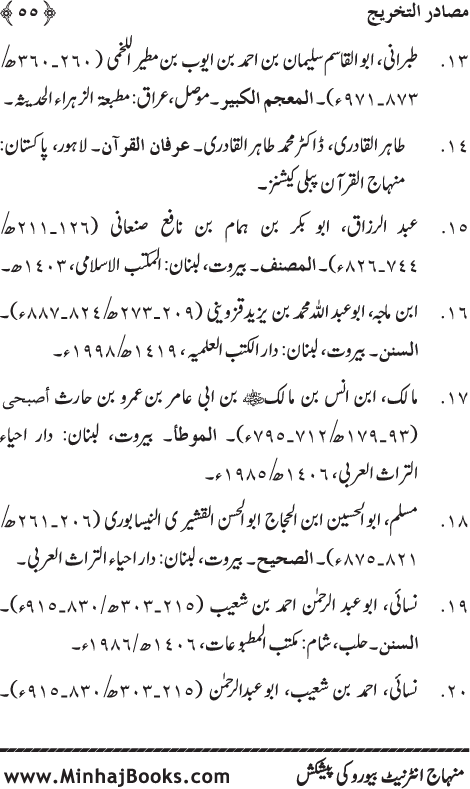 مصادر التخریج ﴿ ۵۵ ﴾
۱۳۔ طبرانی، ابو القاسم سلیمان بن احمد بن ایوب بن مطیر اللخمی (۲۶۰۔۳۶۰ھ/
۸۷۳۔۹۷۱ء)۔ المعجم الکبیر۔ موصل، عراق: مطبعۃ الزہراء الحدیثہ۔
۱۴۔ طاہر القادری، ڈاکٹر محمد طاہر القادری۔ عرفان القرآن۔ لاہور، پاکستان:
منہاج القرآن پبلی کیشنز۔
۱۵۔ عبد الرزاق، ابو بکر بن ہمام بن نافع صنعانی (۱۲۶۔۲۱۱ھ/
۷۴۴۔۸۲۶ء)۔ المصنف۔ بیروت، لبنان: المکتب الاسلامی، ۱۴۰۳ھ۔
۱۶۔ ابن ماجہ، ابو عبد اللہ محمد بن یزید قزوینی (۲۰۹۔۲۷۳ھ/۸۲۴۔۸۸۷ء)۔
السنن۔ بیروت، لبنان: دار الکتب العلمیہ، ۱۴۱۹ھ/۱۹۹۸ء۔
۱۷۔ مالک، ابن انس بن مالک بن ابی عامر بن عمرو بن حارث أصبحی
(۹۳۔۱۷۹ھ/۷۱۲۔۷۹۵ء)۔ الموطأ۔ بیروت، لبنان: دار احیاء
التراث العربی، ۱۴۰۶ھ/۱۹۸۵ء۔
۱۸۔ مسلم، ابو الحسین ابن الحجاج ابو الحسن القشیری النیسابوری (۲۰۶۔۲۶۱ھ/
۸۲۱۔۸۷۵ء)۔ الصحیح۔ بیروت، لبنان: دار احیاء التراث العربی۔
۱۹۔ نسائی، ابو عبد الرحمٰن احمد بن شعیب (۲۱۵۔۳۰۳ھ/۸۳۰۔۹۱۵ء)۔
السنن۔ حلب، شام: مکتب المطبوعات، ۱۴۰۶ھ/۱۹۸۶ء۔
۲۰۔ نسائی، احمد بن شعیب، ابو عبدالرحمٰن (۲۱۵۔۳۰۳ھ/۸۳۰۔۹۱۵ء)۔
منہاج انٹرنیٹ بیورو کی پیشکش www.MinhajBooks.com